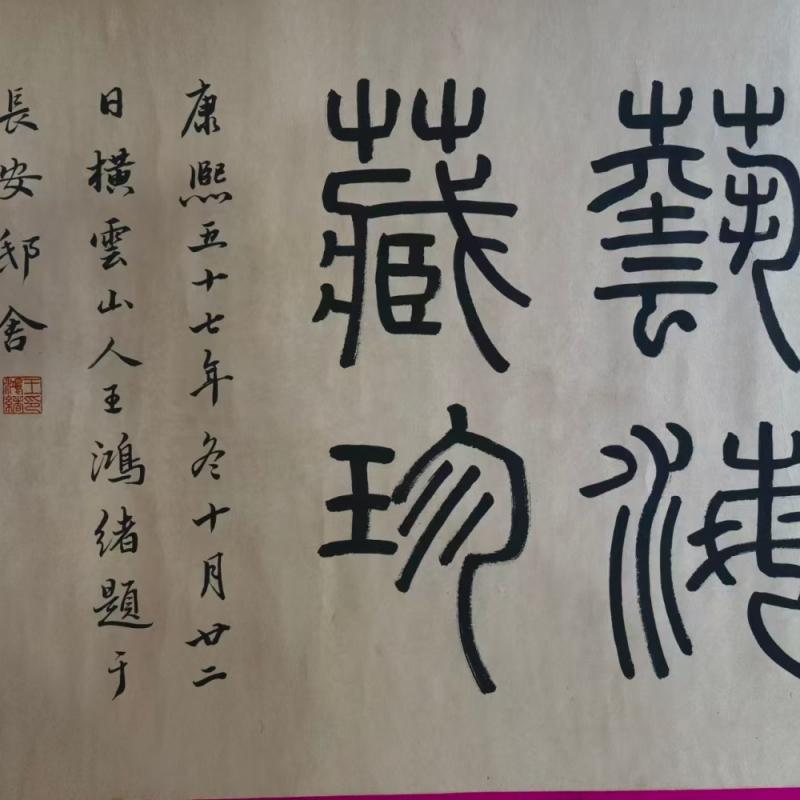 藝海
藏珍
康熙五十七年冬十月廿二
日橫雲山人王鴻緒題于
長安邸舍
王鴻緒印